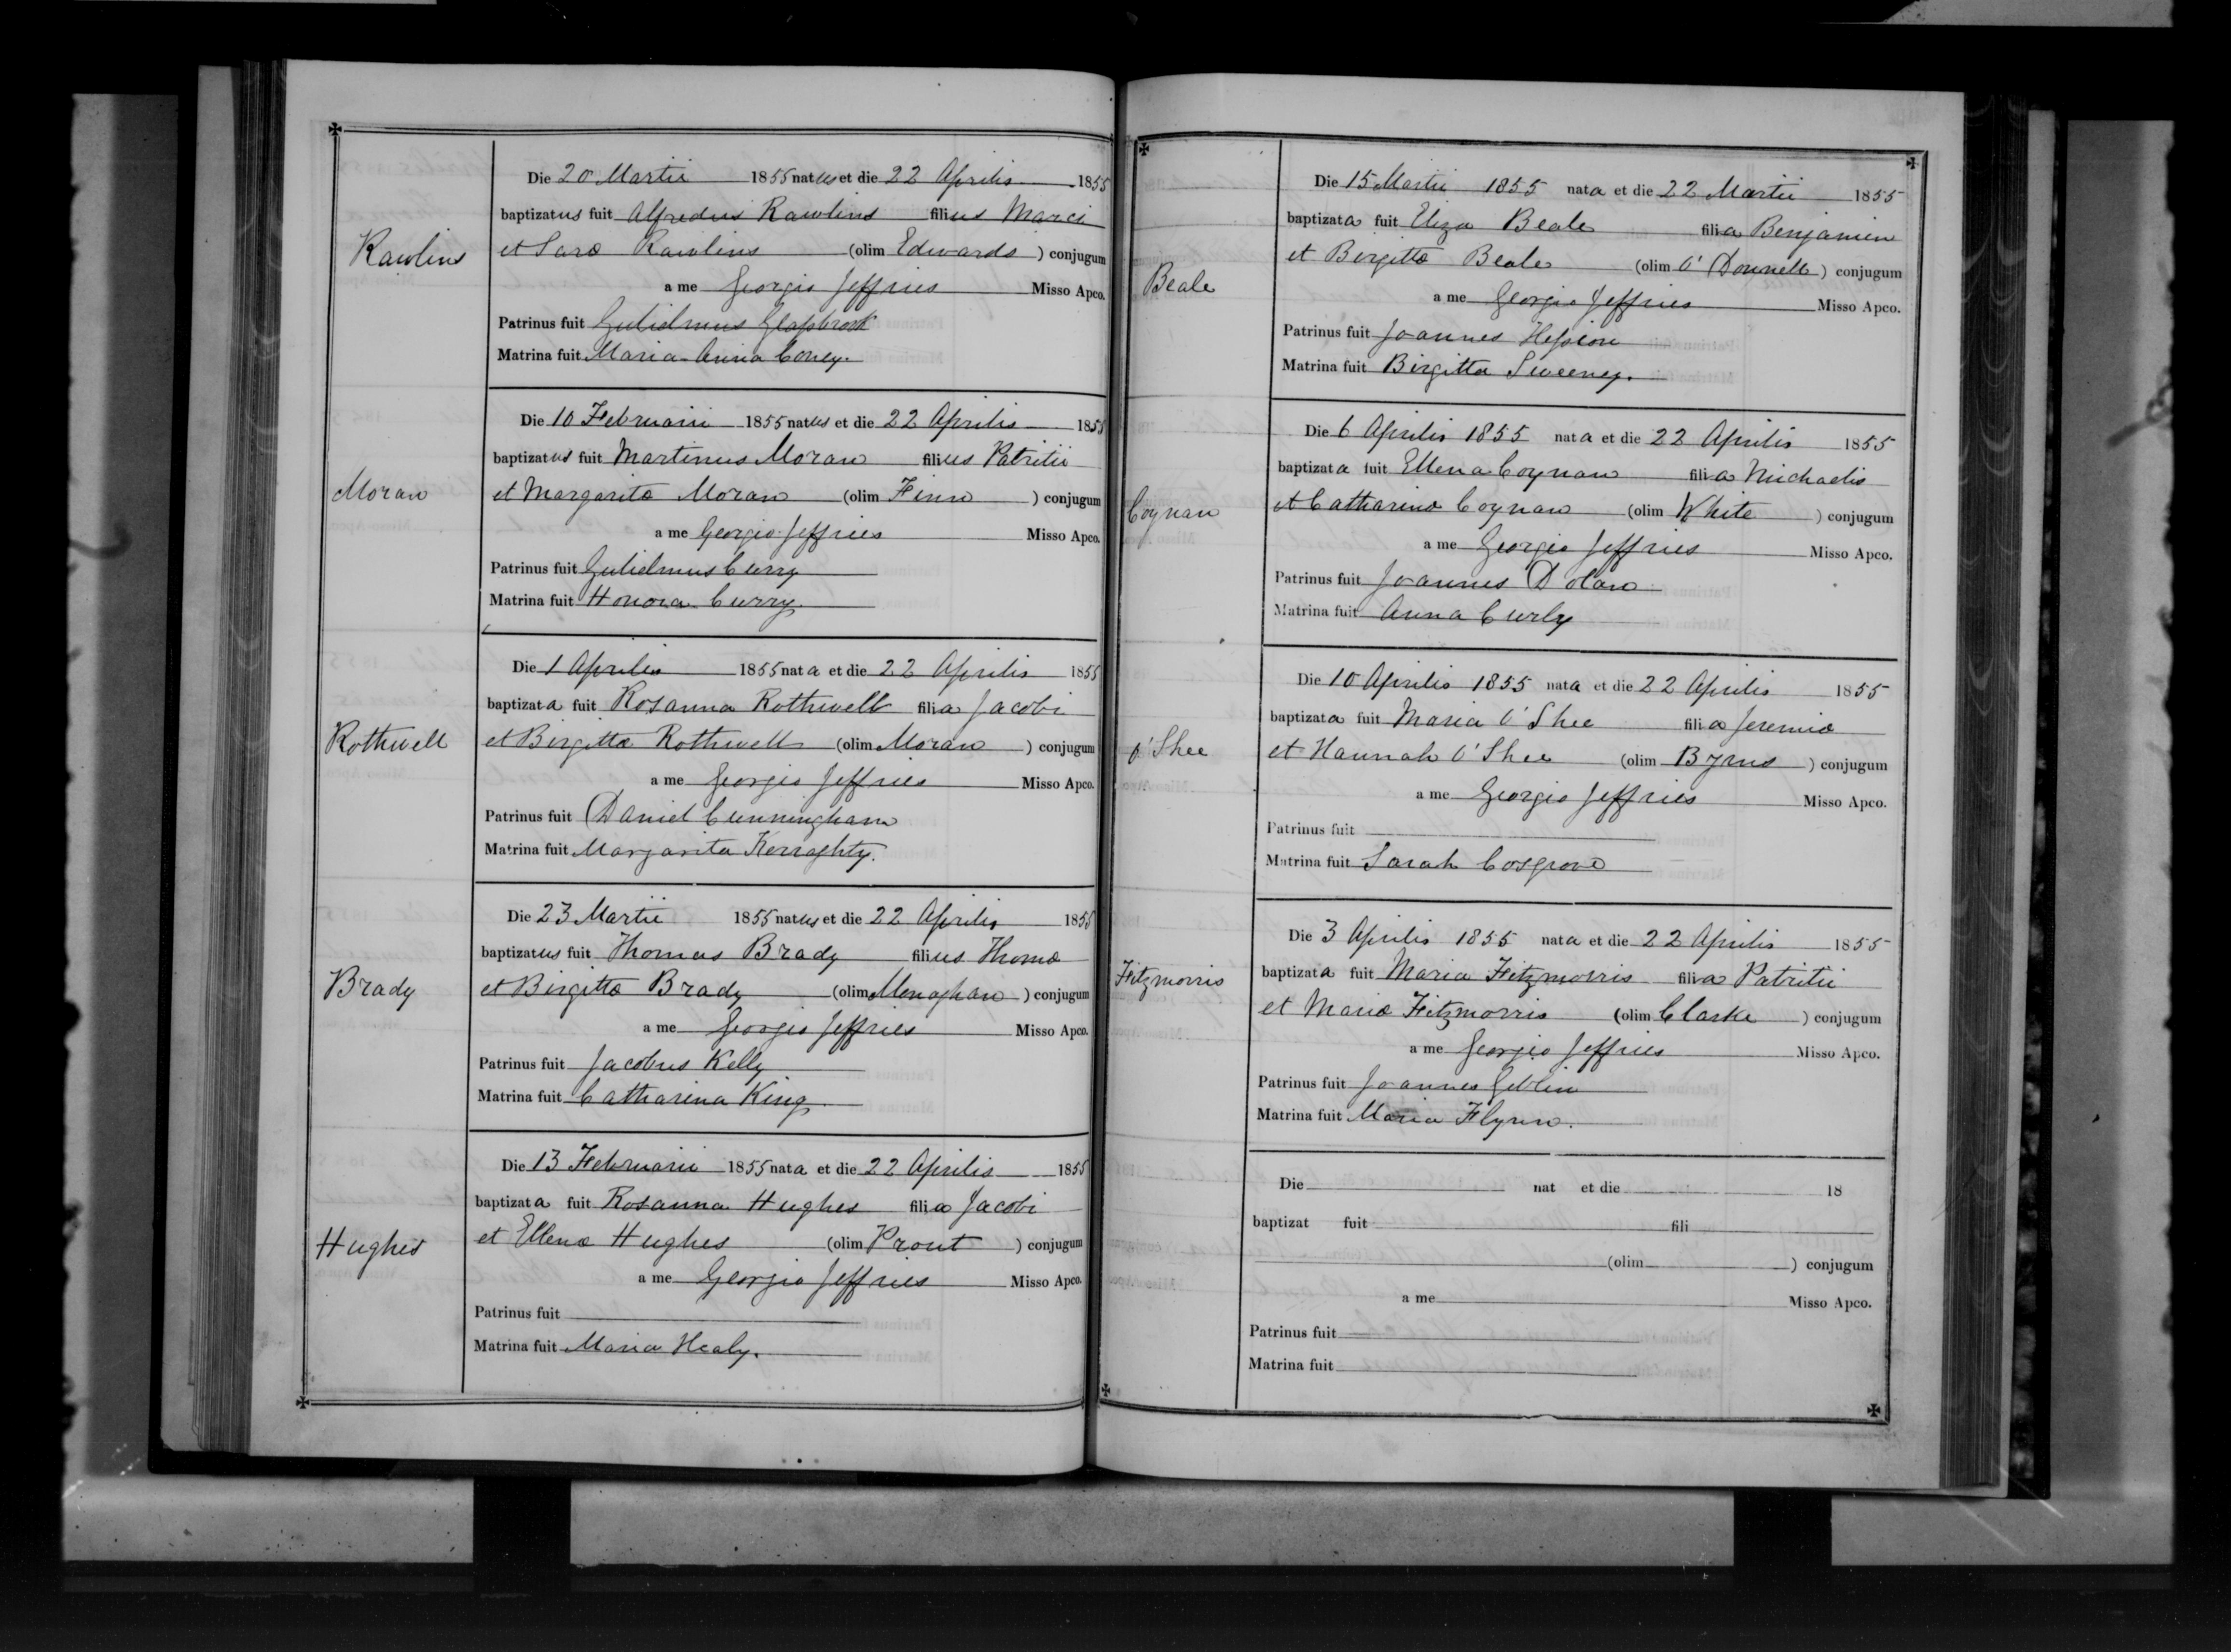 Rawlins
Die 20 Martii 1855 natus et die 22 Aprilis 1855
baptizatus fuit Alfredus Rawlins filius Marci
et Saræ Rawlins (olim Edwards) conjugum
a me Georgio Jeffries Misso Apco.
Patrinus fuit Gulielmus
Matrina fuit Maria Anna Coney.
Moran
Die 10 Februarii 1855 natus et die 22 Aprilis 1855
baptizatus fuit Martinus Moran filius Patritii
et Margaritæ Moran (olim Finn) conjugum
a me Georgio Jeffries Misso Apco.
Patrinus fuit Gulielmus Curry
Matrina fuit Honora Curry.
Rothwell
Die 1 Aprilis 1855 nata et die 22 Aprilis 1855
baptizata fuit Rosanna Rothwell filia Jacobi
et Birgittæ Rothwell (olim Moran) conjugum
a me Georgio Jeffries Misso Apco.
Patrinus fuit Daniel Cunningham
Matrina fuit Margarita Kerraghty.
Brady
Die 23 Martii 1855 natus et die 22 Aprilis 1855
baptizatus fuit Thomas Brady filius Thomæ
et Birgittæ Brady (olim Monaghan) conjugum
a me Georgio Jeffries Misso Apco.
Patrinus fuit Jacobus Kelly
Matrina fuit Catharina King
Hughes
Die 13 Februarii 1855 nata et die 22 Aprilis 1855
baptizata fuit Rosanna Hughes filia Jacobi
et Ellenæ Hughes (olim Prout) conjugum
a me Georgio Jeffries Misso Apco.
Patrinus fuit
Matrina fuit Maria Healy.
Beale
Die 15 Martii 1855 nata et die 22 Martii 1855
baptizata fuit Eliza Beale filia Benjamin
et Birgittæ Beale (olim O'Donnell) conjugum
a me Georgio Jeffries Misso Apco.
Patrinus fuit Joannes Hession
Matrina fuit Birgitta Sweeney.
Coynan
Die 6 Aprilis 1855 nata et die 22 Aprilis 1855
baptizata fuit Ellena Coynan filia Michaelis
et Catharinæ Coynan (olim White) conjugum
a me Georgio Jeffries Misso Apco.
Patrinus fuit Joannes Dolan
Matrina fuit Anna Curly
O'Shee
Die 10 Aprilis 1855 nata et die 22 Aprilis 1855
baptizata fuit Maria O'Shee filia Jeremiæ
et Hannah O'Shee (olim Byrns) conjugum
a me Georgio Jeffries Misso Apco.
Patrinus fuit
Matrina fuit Sarah Cosgrove
Fitzmorris
Die 3 Aprilis 1855 nata et die 22 Aprilis 1855
baptizata fuit Maria Fitzmorris filia Patritii
et Mariæ Fitzmorris (olim Clarke) conjugum
a me Georgio Jeffries Misso Apco.
Patrinus fuit Joannes Geblin
Matrina fuit Maria Flynn.
Die nat et die 18
baptizat fuit fili
(olim ) conjugum
a me Misso Apco.
Patrinus fuit
Matrina fuit